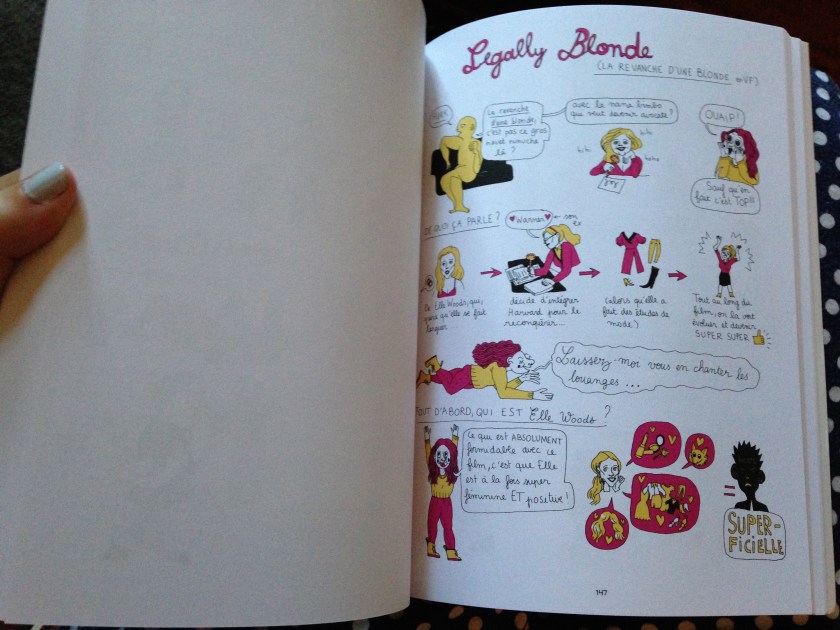 Legally Blonde
(LA REVANCHE D'UNE BLONDE en VF)
La revanche
d'une blonde,
c'est pas ce gros
navet nunuche
là ?
avec la nana bimbo
qui veut devenir avocate ?
hihi
hihi
haha
OUAIP!
Sauf qu'en
fait c'est TOP!!!
DE QUOI ÇA PARLE ?
Warner
son
ex
De Elle Woods, qui,
parce qu'elle se fait
larguer...
décide d'intégrer
Harvard pour le
reconquérir...
(alors qu'elle a
fait des études de
mode)
Tout au long du
film, on la voit
évoluer et devenir
SUPER SUPER
Laissez-moi vous en chanter les
louanges ...
TOUT D'ABORD, QUI EST Elle Woods ?
Ce qui est ABSOLUMENT
formidable avec ce
film, c'est que Elle
est à la fois super
féminine ET positive !
=
SUPER-
FICIELLE
147